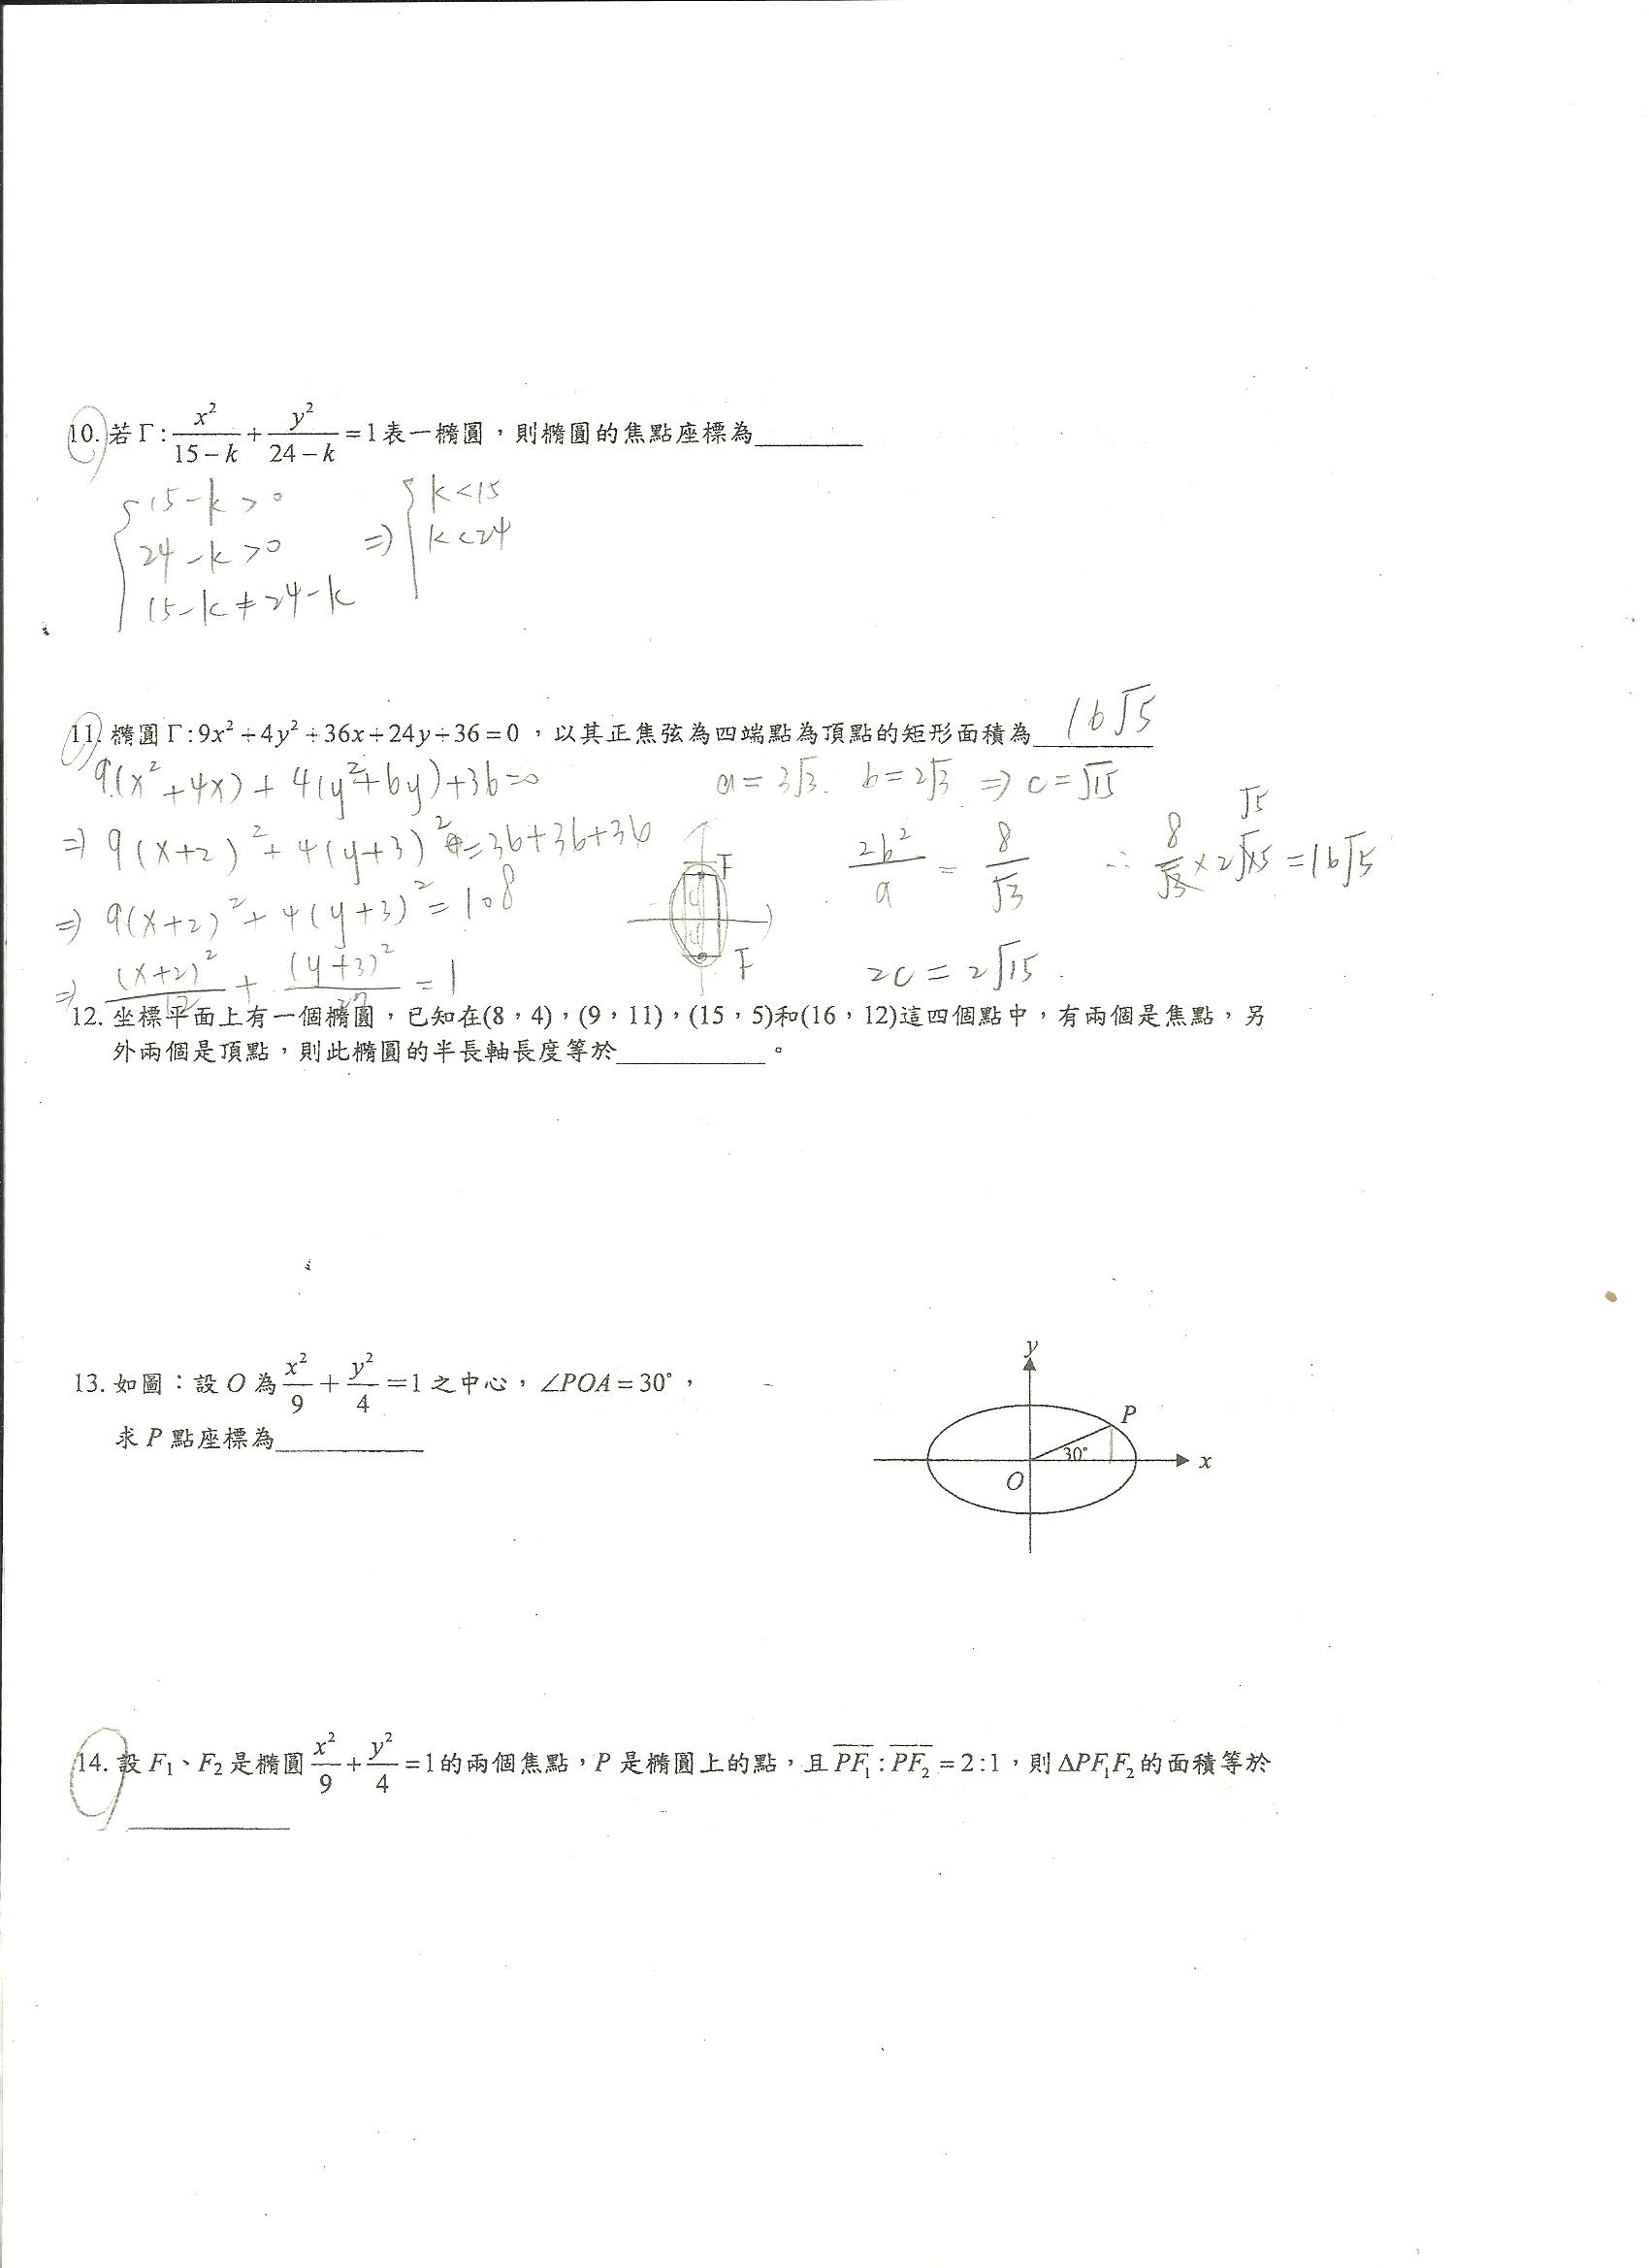 10. 若 Γ: x²/(15-k) + y²/(24-k) = 1 表一橢圓，則橢圓的焦點座標為________
{ 15-k>0
24-k>0
15-k≠24-k
⇒ { k<15
k<24
11. 橢圓 Γ: 9x²+4y²+36x+24y+36=0，以其正焦弦為四端點為頂點的矩形面積為 16√5
9(x²+4x)+4(y²+6y)+36=0
⇒ 9(x+2)²+4(y+3)²=36+36+36
⇒ 9(x+2)²+4(y+3)²=108
⇒ (x+2)²/12 + (y+3)²/27 = 1
F
F
a=3√3. b=2√3 ⇒ c=√15
2b²/a = 8/√3
∴ 8/√3 × 2√15 = 16√5
√5
2c=2√15.
12. 坐標平面上有一個橢圓，已知在(8，4)，(9，11)，(15，5)和(16，12)這四個點中，有兩個是焦點，另
外兩個是頂點，則此橢圓的半長軸長度等於___________。
13. 如圖：設 O 為 x²/9 + y²/4 = 1 之中心，∠POA=30°，
求 P 點座標為___________
y
P
30°
O
x
14. 設 F₁、F₂ 是橢圓 x²/9 + y²/4 = 1 的兩個焦點，P 是橢圓上的點，且 P̅F̅₁ : P̅F̅₂ = 2:1，則 ΔPF₁F₂ 的面積等於
____________